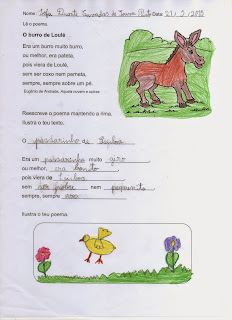 Nome: Sofia Duarte Tavares de Sousa Pinto Data 21/2/2013
Lê o poema.
O burro de Loulé
Era um burro muito burro,
ou melhor, era pateta,
pois viera de Loulé,
sem ser coxo nem perneta,
sempre, sempre sobre um pé.
Eugénio de Andrade, Aquela nuvem e outras
Reescreve o poema mantendo a rima.
Ilustra o teu texto.
O passarinho de Lisboa
Era um passarinho muito giro
ou melhor, era bonito
pois viera de Lisboa
sem ser pobre nem pequenito
sempre, sempre voa
Ilustra o teu poema.